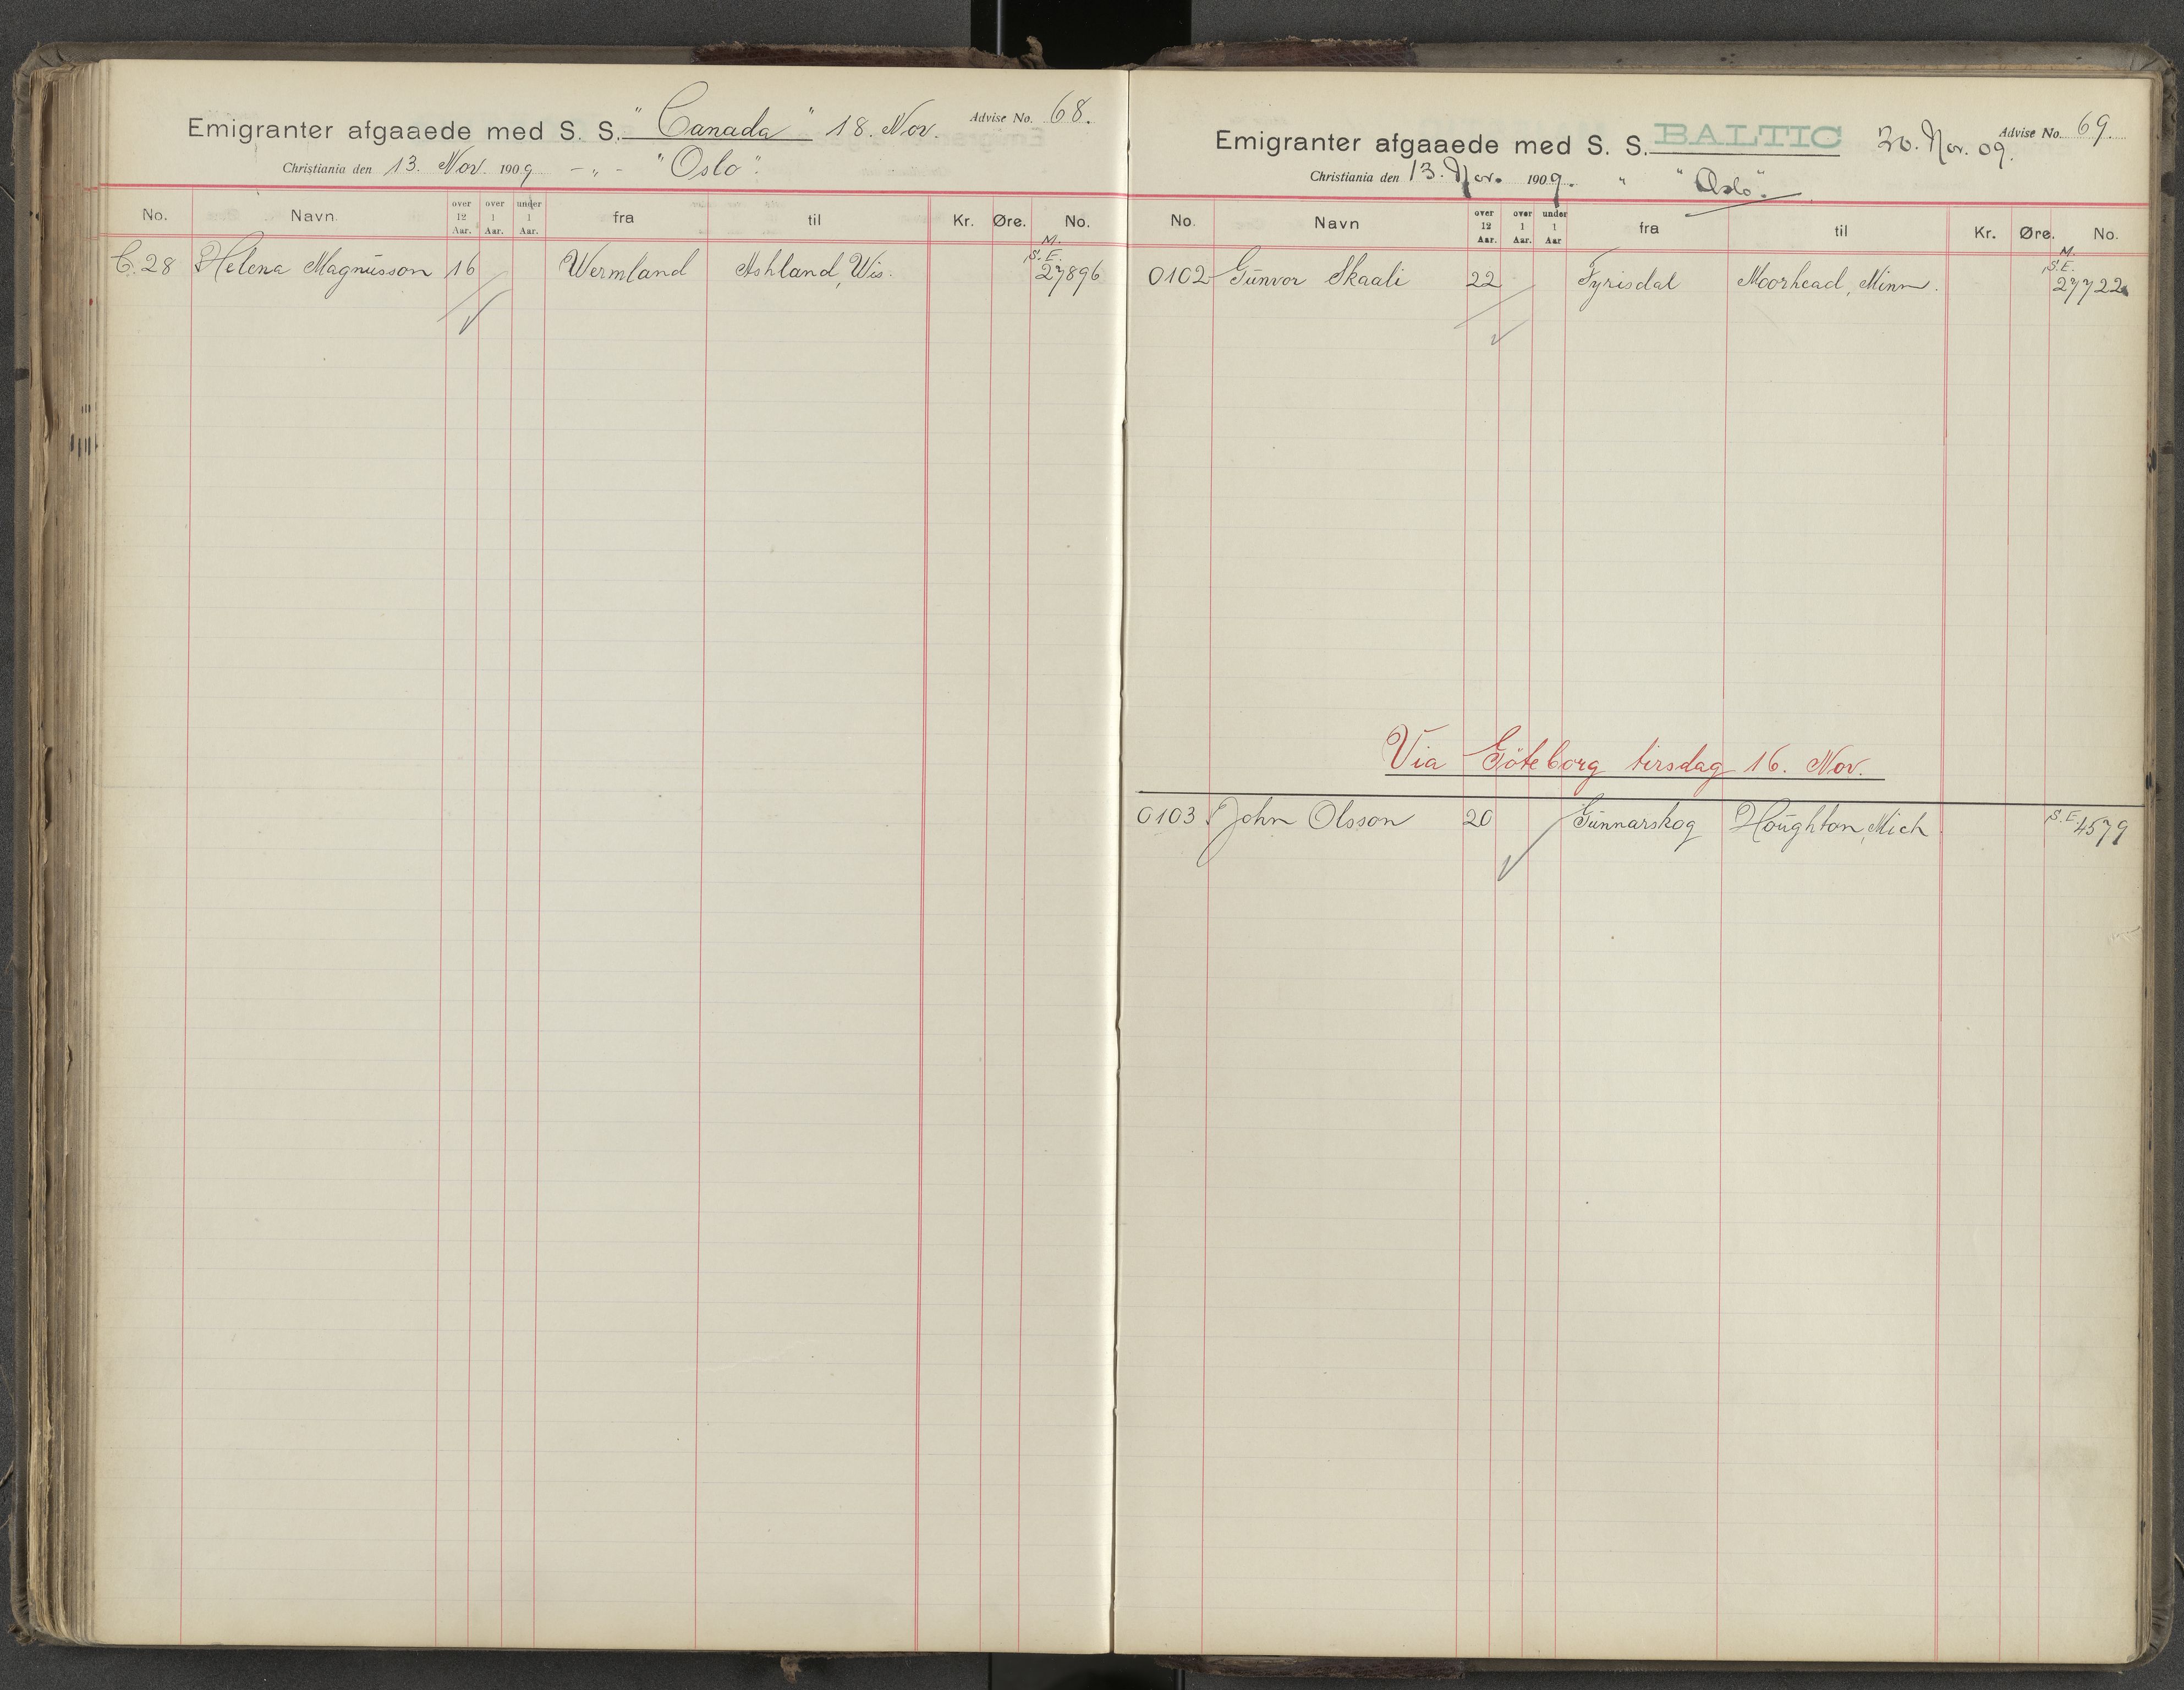 Emigranter afgaaede med S. S. "Canada" 18. Nov. Advise No. 68.
Christiania den 13. Nov. 1909 - „ - "Oslo".
No. Navn over 12 Aar. over 1 Aar. under 1 Aar. fra til Kr. Øre. No.
C.28 Helena Magnusson 16 Wermland Ashland, Wis. M. S.E. 27896
Emigranter afgaaede med S. S. BALTIC 20. Nov. 09. Advise No. 69.
Christiania den 13. Nov. 1909. " "Oslo".
No. Navn over 12 Aar. over 1 Aar. under 1 Aar fra til Kr. Øre. No.
0102 Gunvor Skaali 22 Fyrisdal Moorhead, Minn. M. S.E. 27722
Via Göteborg tirsdag 16. Nov.
0103 John Olsson 20 Gunnarskog Houghton, Mich S.E. 4579